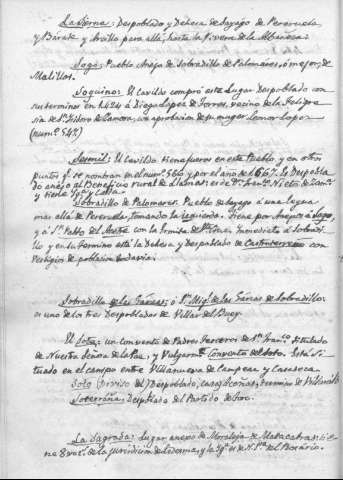 La Serna: Despoblado y Dehesa de Sayago de Pereruela
y Bárate y Arcillo para allá, hasta la Rivera de la Albañeza.
Sogo: Pueblo Anejo de Sobradillo de Palomares, ó mejor, de
Malillos.
Soguino: El Cavildo compró este Lugar Despoblado con
sus terminos en 1424 á Diego Lopez de Torres, vecino de la felipre
sia de Sn. Isidoro de Zamora, con aprobacion de su muger Leonor Lopez
(num.º 54º)
Sesmil: El Cavildo tiene fueros en este Pueblo, y en otros
puntos qe. se nombran en el num.º 560 y por el año de 1667. Es Despobla
do anejo al Beneficio rural de Llamas: es de D. Franco. Nieto de Zama.
y tiene Yga. y Casa.
Sobradillo de Palomares. Pueblo de Sayago á una legua
mas allá de Pereruela, tomando la izquierda. Tiene por Anejos á Sogo,
y á Sn. Pablo del Monte con la Ermita del Sto. Tomé inmediata á Sobradi
llo y en su termino está la Dehesa y Despoblado de Castroterreño con
Vestigios de poblacion todavia.
Sobradillo de las Farzas: ó Sn. Migl. de las Farzas de Sobradillo:
es uno de los tres Despoblados de Villar del Buey.
El Soto: un convento de Padres Terceros de Sn. Franco. titulado
de Nuestra Señora de la Paz, y Vulgarmte. Convento del Soto. Está si
tuado en el campo entre Villanueva de Campean y Casaseca
Soto (Diviso del) Despoblado, casas y aceñas, termino de Villaralbo
Soterraña: Despoblado del Partido de Toro.
La Sagrada: Lugar anexo de Moraleja de Matacabras: tie
ne 8 vecs. de la juridicion de Ledesma, y la Yga. es de Na. Sra. del Rosario.